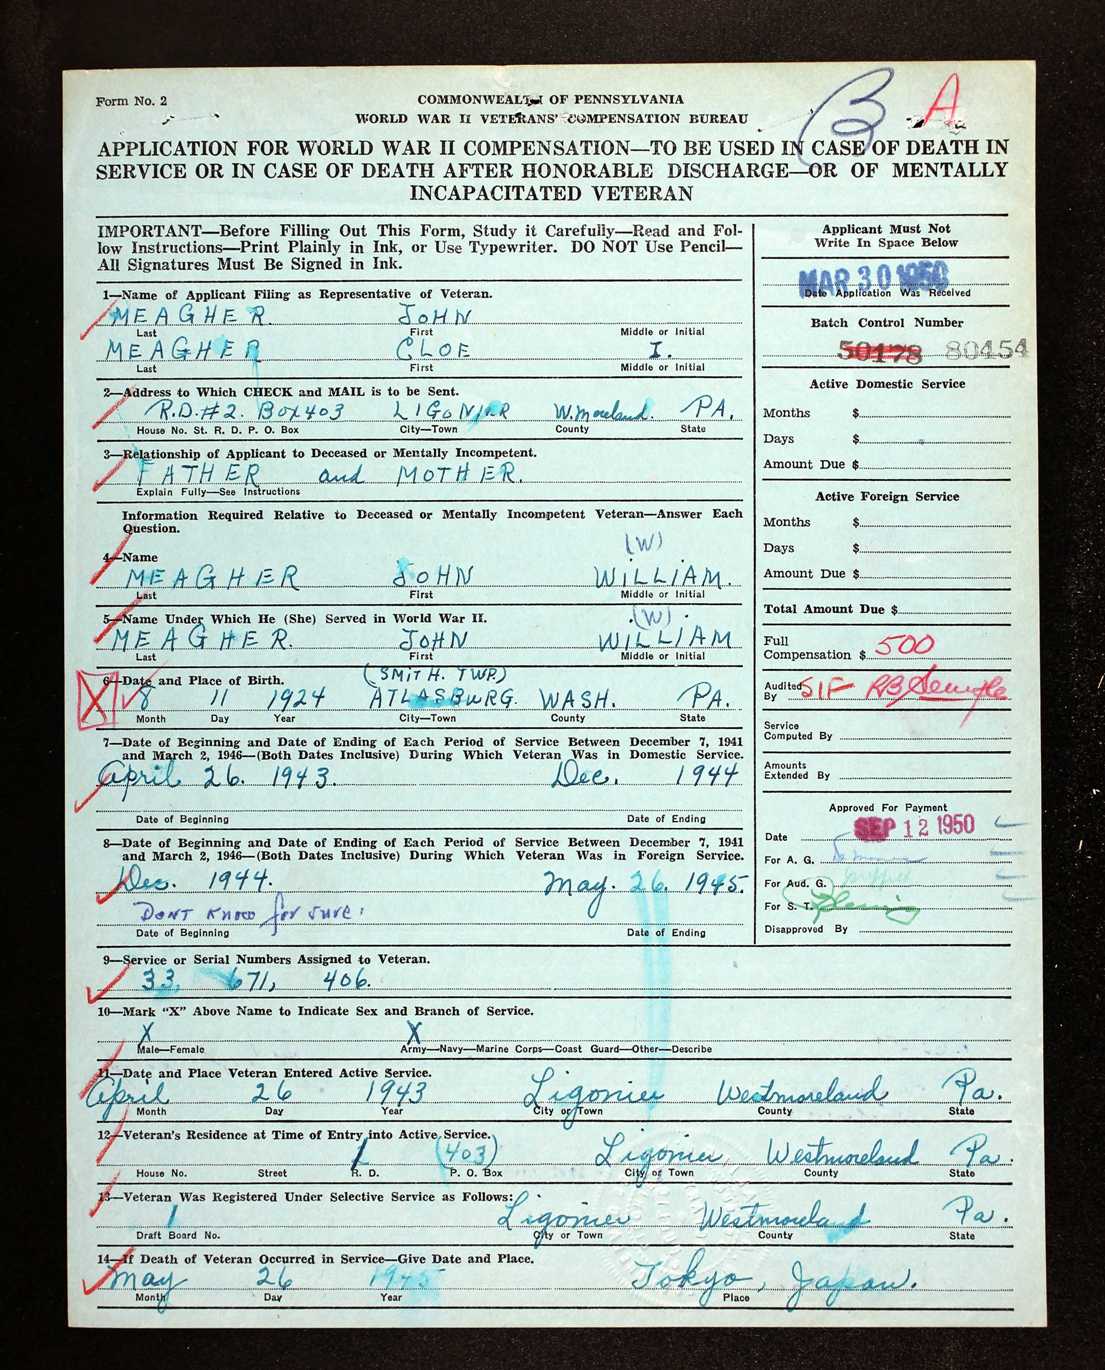 Form No. 2
COMMONWEALTH OF PENNSYLVANIA
WORLD WAR II VETERANS' COMPENSATION BUREAU
B A
APPLICATION FOR WORLD WAR II COMPENSATION—TO BE USED IN CASE OF DEATH IN
SERVICE OR IN CASE OF DEATH AFTER HONORABLE DISCHARGE—OR OF MENTALLY
INCAPACITATED VETERAN
IMPORTANT—Before Filling Out This Form, Study it Carefully—Read and Fol-
low Instructions—Print Plainly in Ink, or Use Typewriter. DO NOT Use Pencil—
All Signatures Must Be Signed in Ink.
1—Name of Applicant Filing as Representative of Veteran.
MEAGHER. JOHN
Last First Middle or Initial
MEAGHER CLOE I.
Last First Middle or Initial
2—Address to Which CHECK and MAIL is to be Sent.
R.D.#2. BOX403 LIGONIER W.moreland. PA.
House No. St. R. D. P. O. Box City—Town County State
3—Relationship of Applicant to Deceased or Mentally Incompetent.
FATHER and MOTHER.
Explain Fully—See Instructions
Information Required Relative to Deceased or Mentally Incompetent Veteran—Answer Each
Question.
(W)
4—Name
MEAGHER JOHN WILLIAM.
Last First Middle or Initial
5—Name Under Which He (She) Served in World War II. (W)
MEAGHER. JOHN WILLIAM
Last First Middle or Initial
6—Date and Place of Birth. (SMITH. TWP.)
X 8 11 1924 ATLASBURG. WASH. PA.
Month Day Year City—Town County State
7—Date of Beginning and Date of Ending of Each Period of Service Between December 7, 1941
and March 2, 1946—(Both Dates Inclusive) During Which Veteran Was in Domestic Service.
April 26. 1943. Dec. 1944
Date of Beginning Date of Ending
8—Date of Beginning and Date of Ending of Each Period of Service Between December 7, 1941
and March 2, 1946—(Both Dates Inclusive) During Which Veteran Was in Foreign Service.
Dec. 1944. May. 26. 1945.
DONT KNOW for sure.
Date of Beginning Date of Ending
Applicant Must Not
Write In Space Below
MAR 30 1950
Date Application Was Received
Batch Control Number
50178 80454
Active Domestic Service
Months $
Days $
Amount Due $
Active Foreign Service
Months $
Days $
Amount Due $
Total Amount Due $
Full
Compensation $ 500
Audited
By SIF
Service
Computed By
Amounts
Extended By
Approved For Payment
SEP 12 1950
Date
For A. G.
For Aud. G.
For S. T.
Disapproved By
9—Service or Serial Numbers Assigned to Veteran.
33, 671, 406.
10—Mark "X" Above Name to Indicate Sex and Branch of Service.
X X
Male—Female Army—Navy—Marine Corps—Coast Guard—Other—Describe
11—Date and Place Veteran Entered Active Service.
April 26 1943 Ligonier Westmoreland Pa.
Month Day Year City or Town County State
12—Veteran's Residence at Time of Entry into Active Service.
1 (403) Ligonier Westmoreland Pa.
House No. Street R. D. P. O. Box City or Town County State
13—Veteran Was Registered Under Selective Service as Follows:
1 Ligonier Westmoreland Pa.
Draft Board No. City or Town County State
14—If Death of Veteran Occurred in Service—Give Date and Place.
May 26 1945 Tokyo, Japan.
Month Day Year Place